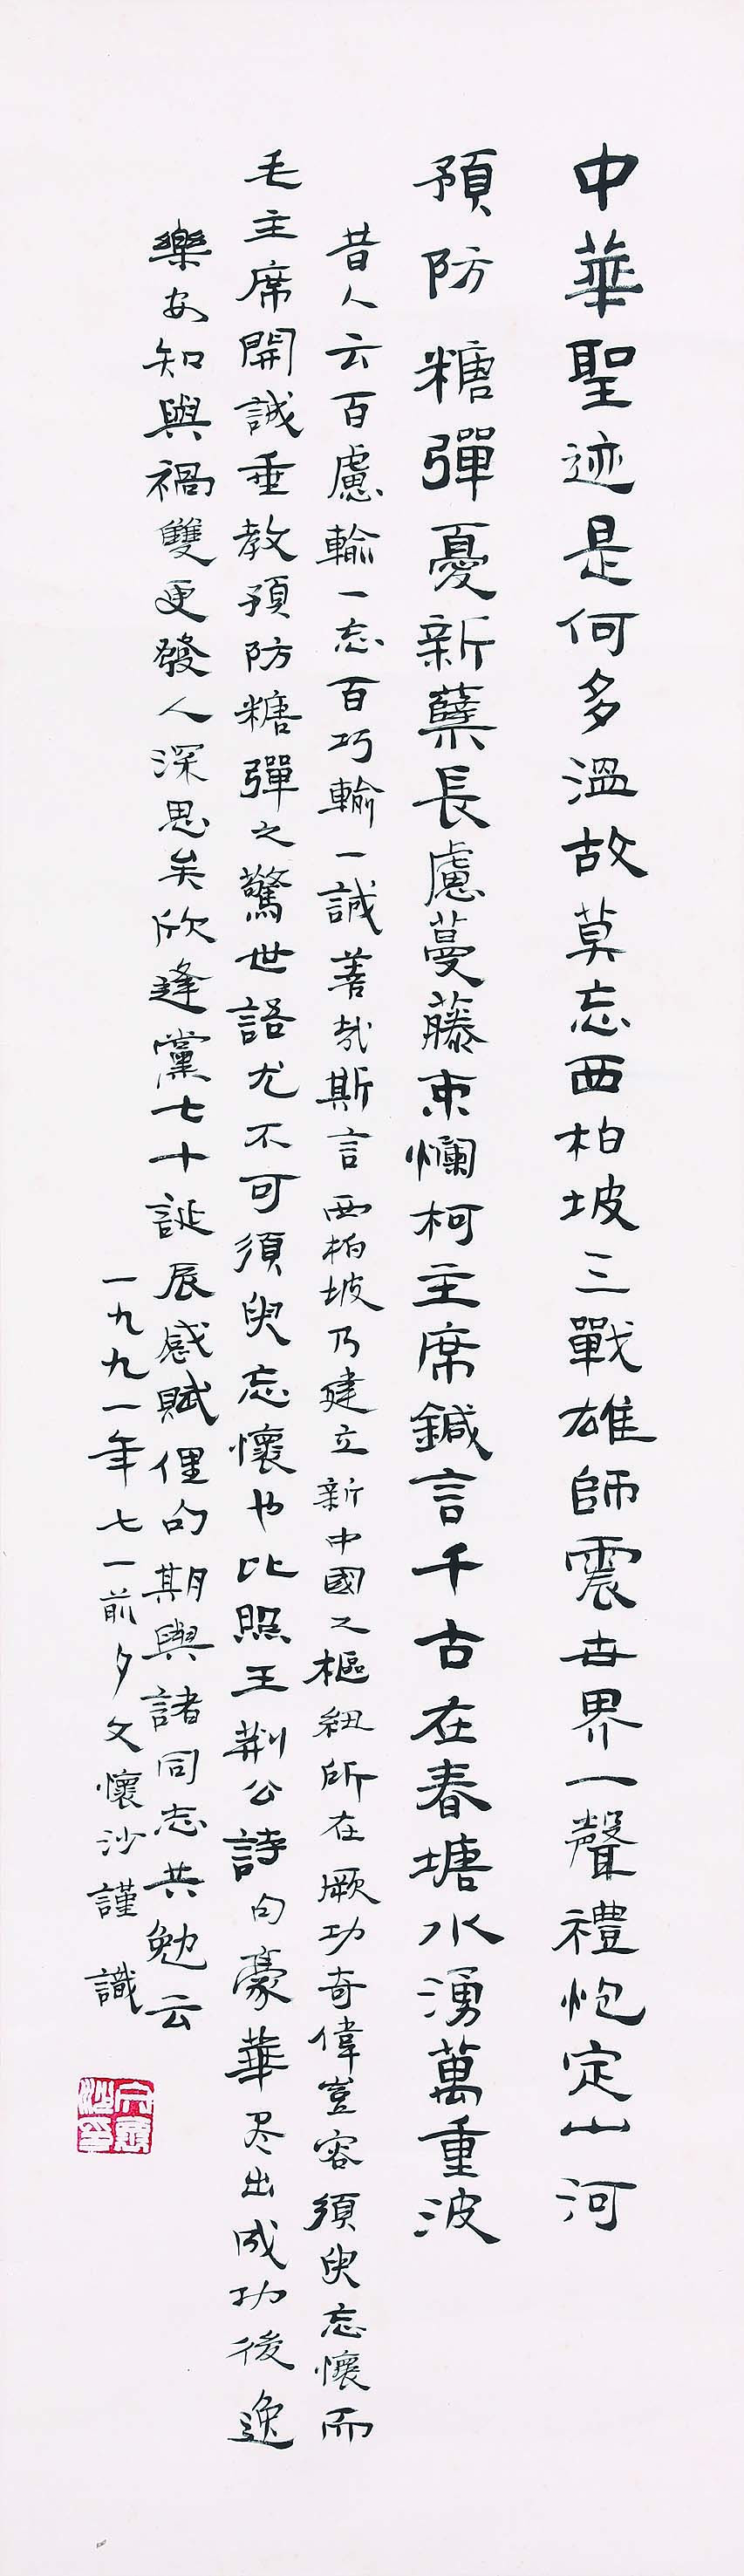 中華聖迹是何多溫故莫忘西柏坡三戰雄師震世界一聲禮炮定山河
預防糖彈憂新蘖長慮蔓藤束爛柯主席鍼言千古在春塘水湧萬重波
昔人云百慮輸一忘百巧輸一誠善哉斯言西柏坡乃建立新中國之樞紐所在厥功奇偉豈容須臾忘懷而
毛主席開誠垂教預防糖彈之驚世語尤不可須臾忘懷也比照王荆公詩句豪華尽出成功後逸
樂安知與禍雙更發人深思矣欣逢黨七十誕辰感賦俚句期與諸同志共勉云
一九九一年七一前夕文懷沙謹識
文懷沙印